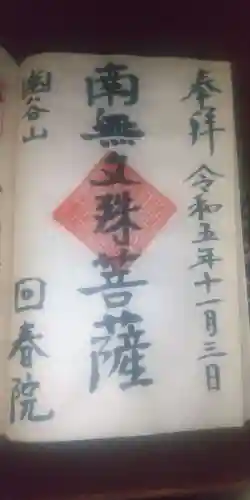 奉拝 令和五年十一月三日
南無文珠菩薩
幽谷山
回春院